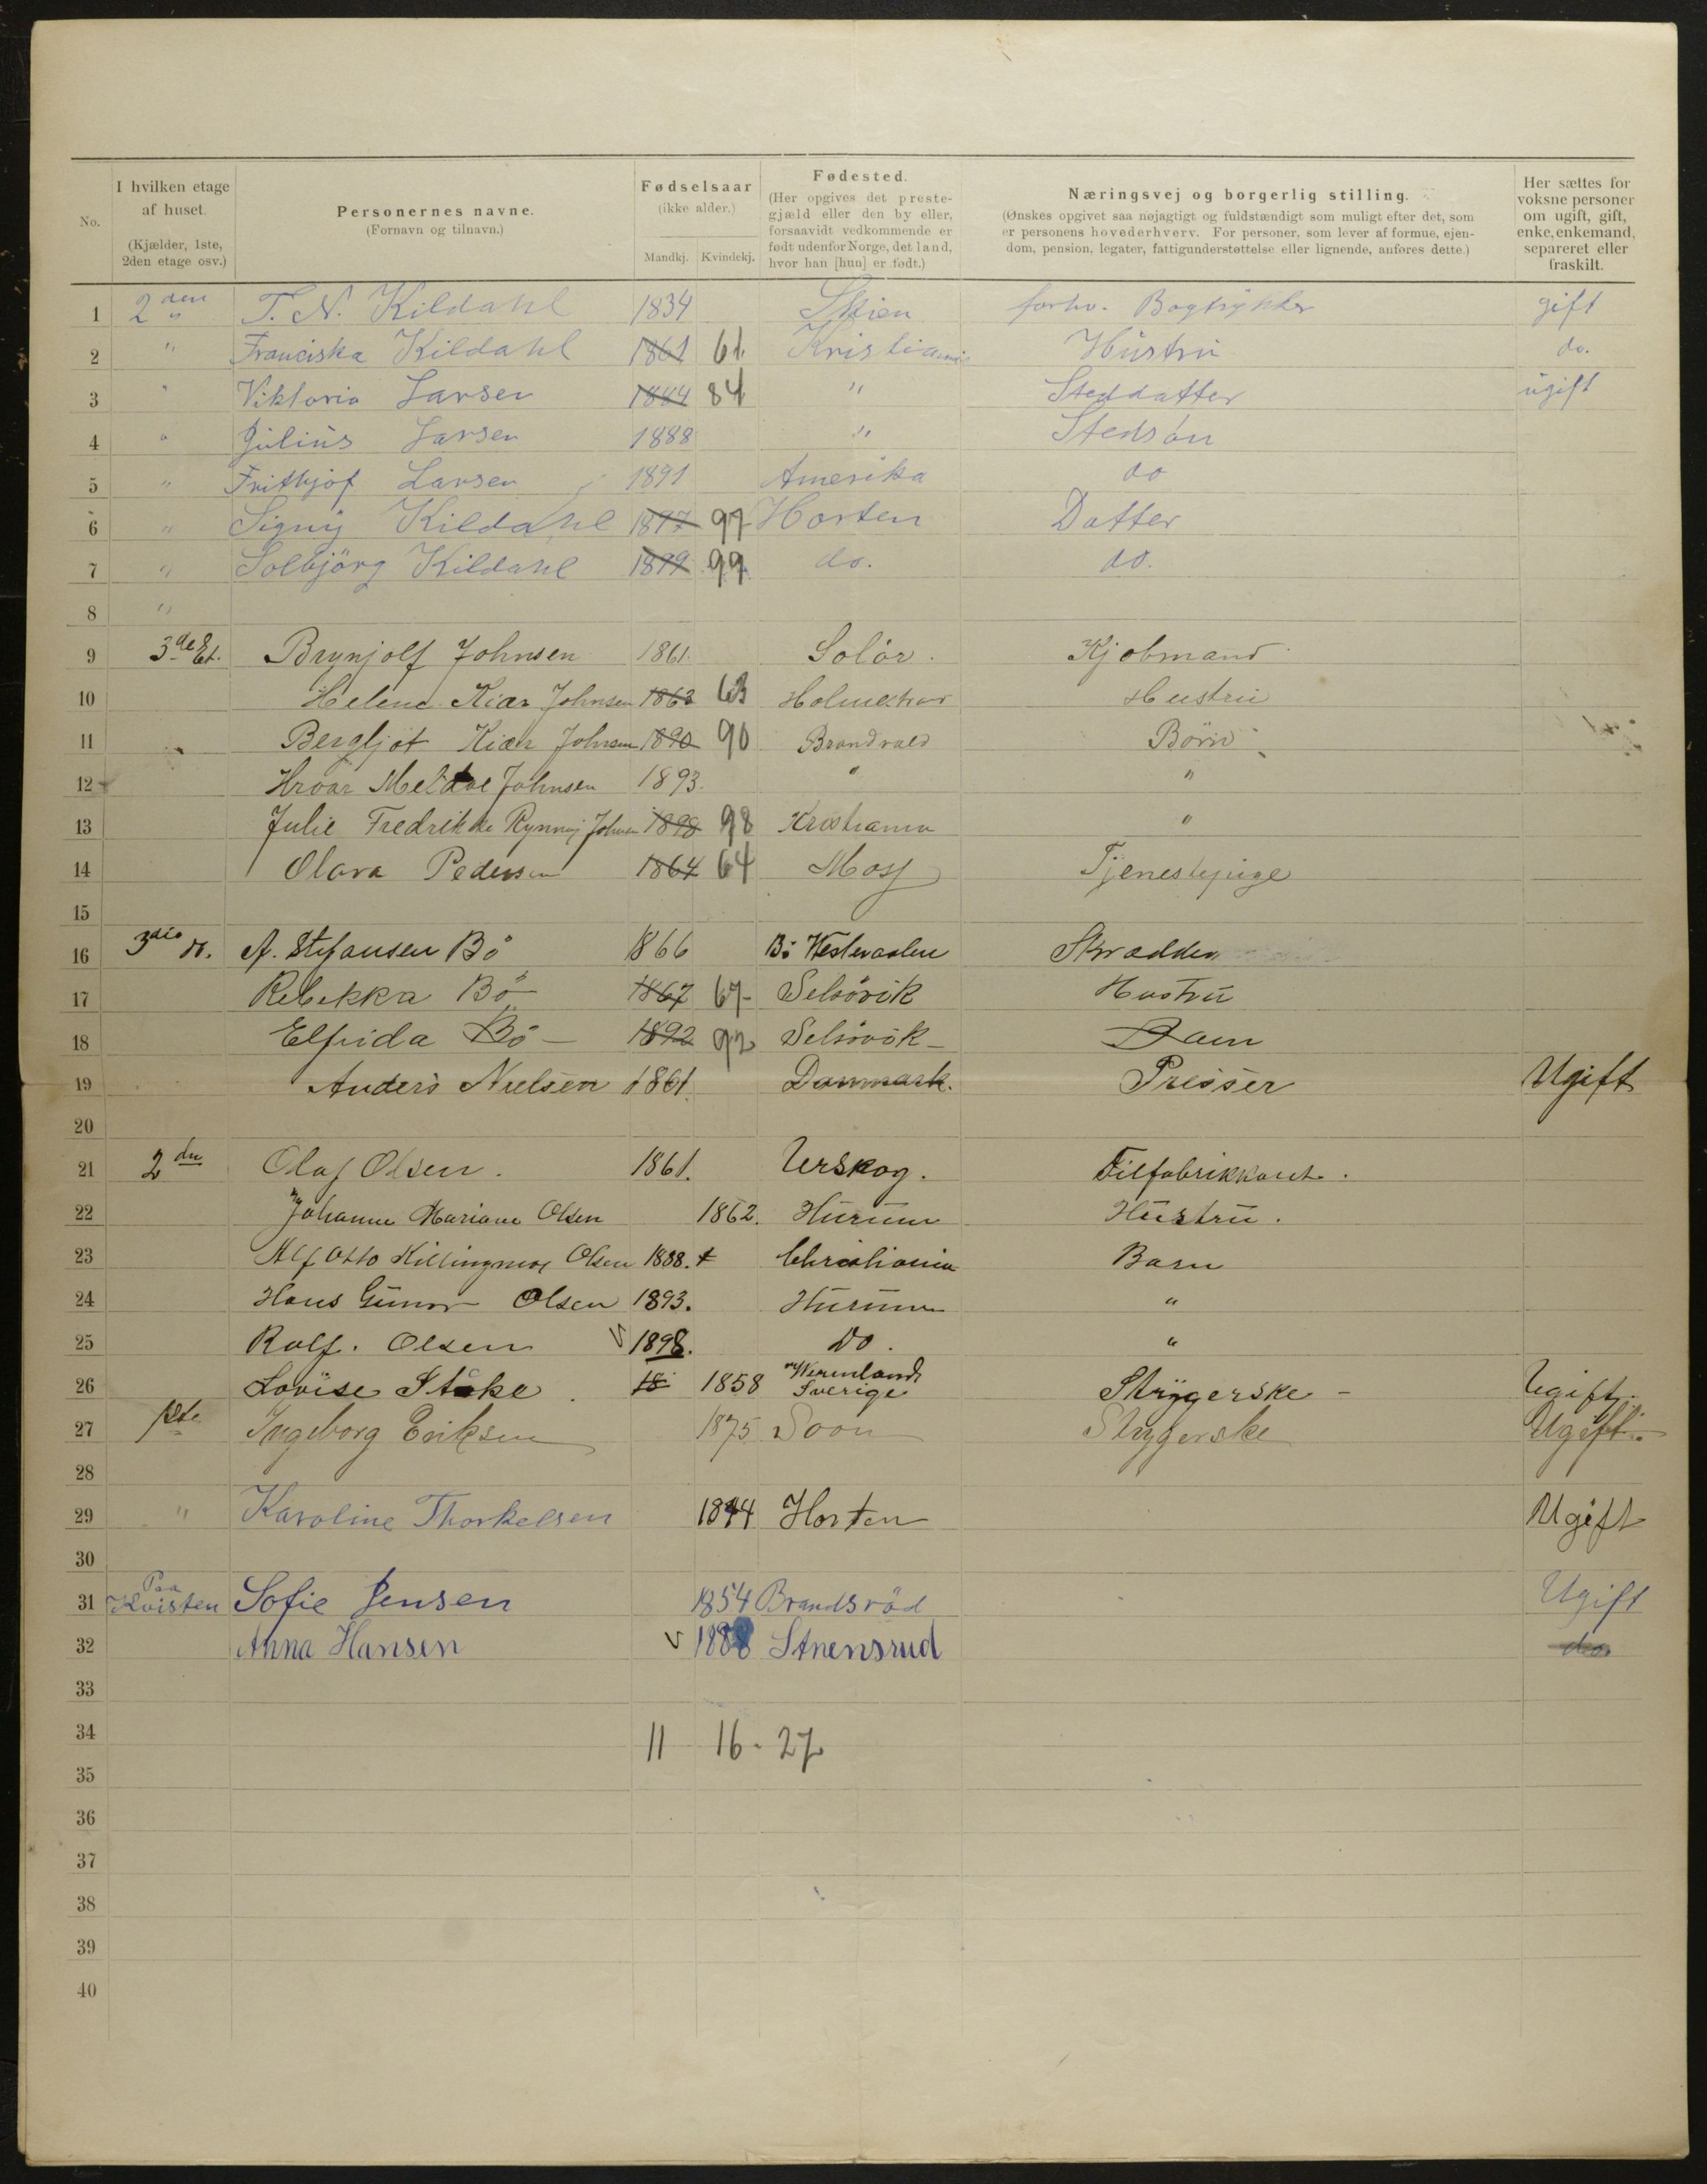 No.
I hvilken etage
af huset.
(Kjælder, 1ste,
2den etage osv.)
Personernes navne.
(Fornavn og tilnavn.)
Fødselsaar
(ikke alder.)
Mandkj. Kvindekj.
Fødested.
(Her opgives det preste-
gjæld eller den by eller,
forsaavidt vedkommende er
født udenfor Norge, det land,
hvor han [hun] er født.)
Næringsvej og borgerlig stilling.
(Ønskes opgivet saa nøjagtigt og fuldstændigt som muligt efter det, som
er personens hovederhverv. For personer, som lever af formue, ejen-
dom, pension, legater, fattigunderstøttelse eller lignende, anføres dette.)
Her sættes for
voksne personer
om ugift, gift,
enke, enkemand,
separeret eller
fraskilt.
1 2den " T. N. Kildahl 1834 Skien forhv. Bogtrykker gift
2 " Franciska Kildahl 1861 61. Kristiania Hustru do.
3 " Viktoria Larsen 1884 84 " Steddatter ugift
4 " Julius Larsen 1888 " Stedsön
5 " Frithjof Larsen 1891 Amerika do
6 " Signy Kildahl 1897 97 Horten Datter
7 " Solbjörg Kildahl 1899 99 do. do.
8 "
9 3de Et. Brynjolf Johnsen 1861. Solör. Kjöbmand
10 Helene Kiær Johnsen 1863 63 Holmestran Hustru
11 Bergljot Kiær Johnsen 1890 90 Brandvald Börn
12 Hroar Johnsen 1893. " "
13 Julie Fredrikke Johnsen 1898 98 Kristiania "
14 Olava Pedersen 1864 64 Moss Tjenestepige
15
16 3die A. Stefansen Bö 1866 Bö Westeraalen Skrædder
17 Rebekka Bö 1867 67- Selsövik Hustru
18 Elfrida Bö - 1892 92 Selsövik -
19 Anders Nielsen 1861. Danmark. Presser Ugift
20
21 2den Olaf Olsen. 1861. Urskog. Filfabrikkant.
22 Johanne Mariane Olsen 1862. Hurum Hustru.
23 Alf Otto Killingmos Olsen 1888. Christiania Barn
24 Hans Gunnar Olsen 1893. Hurum "
25 Rolf. Olsen 1898. Do. "
26 Lovise Stake. 18 1858 Wermland Sverige Strygerske - Ugift.
27 1ste Ingeborg Eriksen 1875 Soon Strygerske Ugift.
28
29 " Karoline Thorkelsen 1844 Horten Ugift
30
31 Paa Kvisten Sofie Jensen 1854 Brandsröd Ugift
32 Anna Hansen 1888 Stnensrud do
33
34 11 16 - 27
35
36
37
38
39
40